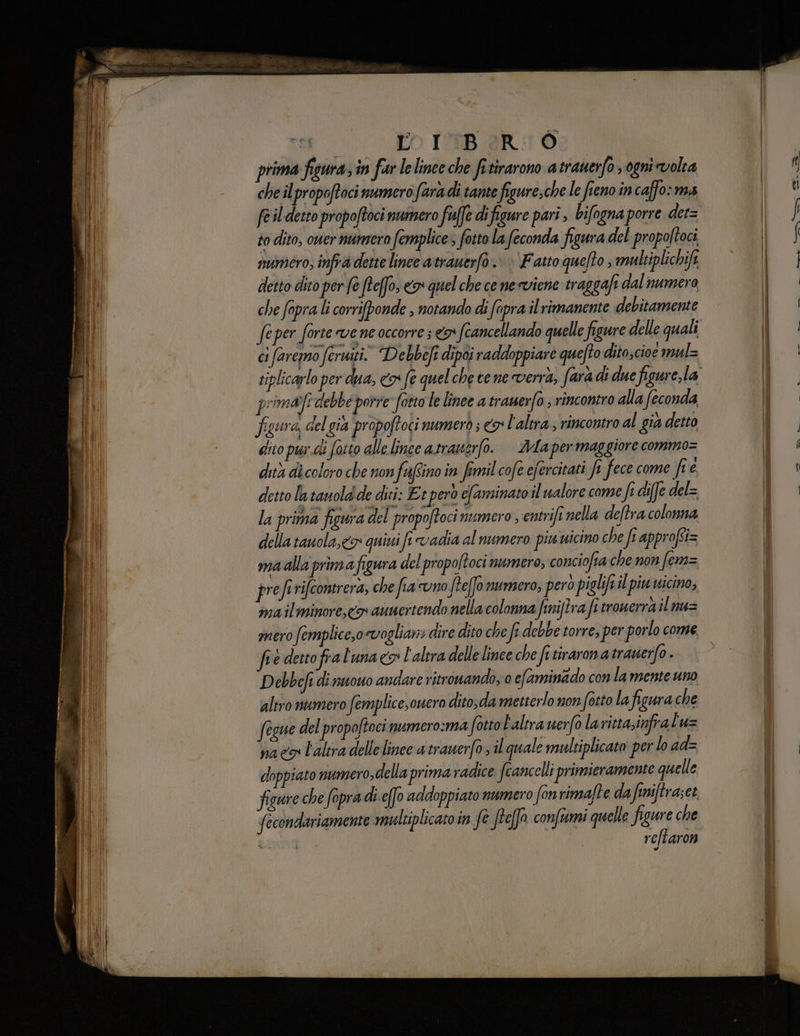 LIBRO
prima figura, in far le linee che ſi tirarono a trauerſo, ogni volta
che il propoſtoci numero ſarà di tante figure, che le ſieno in caffo: ma
ſe il detto propoſtoci numero fuſſe di figure pari, biſogna porre det=
to dito, ouer numero ſemplice, ſotto la ſeconda figura del propoſtoci
numero, infra dette linee a trauerſo. Fatto queſto, multiplichiſi
detto dito per ſe ſteſſo, & quel che ce ne viene traggaſi dal numero
che ſopra li corriſponde, notando di ſopra il rimanente debitamente
ſe per ſorte ve ne occorre; & ſcancellando quelle figure delle quali
ci ſaremo ſeruiti. Debbeſi dipoi raddoppiare queſto dito, cioè mul=
tiplicarlo per dua, & ſe quel che ce ne verrà, ſarà di due figure, la
prima ſi debbe porre ſotto le linee a trauerſo, rincontro alla ſeconda
figura, del già propoſtoci numero; & l'altra, rincontro al già detto
dito pur di ſotto alle linee a trauerſo. Ma per maggiore commo=
dità di coloro che non fuſſino in ſimil coſe eſercitati ſi fece come ſi è
detto la tauola de diti: Et però eſaminato il ualore come ſi diſſe del=
la prima figura del propoſtoci numero, entriſi nella deſtra colonna
della tauola, & quiui ſi vadia al numero piu uicino che ſi approſſi=
ma alla prima figura del propoſtoci numero, concioſia che non ſem=
pre ſi riſcontrerà, che ſia vno ſteſſo numero, però pigliſi il piu uicino,
ma il minore, & auuertendo nella colonna ſiniſtra ſi trouerrà il nu=
mero ſemplice, o vogliam dire dito che ſi debbe torre, per porlo come
ſi è detto fra l'una & l'altra delle linee che ſi tiraron a trauerſo.
Debbeſi di nuouo andare ritrouando, o eſaminãdo con la mente uno
altro numero ſemplice, ouero dito, da metterlo non ſotto la figura che
ſegue del propoſtoci numero: ma ſotto l'altra uerſo la ritta, infra l'u=
na & l'altra delle linee a trauerſo, il quale multiplicato per lo ad=
doppiato numero, della prima radice ſcancelli primieramente quelle
figure che ſopra di eſſo addoppiato numero ſon rimaſte da ſiniſtra; et
ſecondariamente multiplicato in ſe ſteſſo conſumi quelle figure che
reſtaron